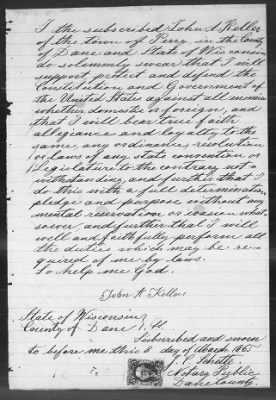 I the subscribed John A. Keller
of the town of Roxy in the County
of Dane and State of Wisconsin
do solemnly swear that I will
support, protect and defend the
Constitution and Government of
the United States against all enemies
whether domestic or foreign, and
that I will bear true faith
allegiance and loyalty to the
same, any ordinance, resolution
or laws of any state convention or
Legislature to the contrary not
withstanding, and further that I
do this with a full determination
pledge and purpose without any
mental reservation or evasion what
soever, and further that I will
well and faithfully perform all
the duties which may be re-
quired of me by laws.
So help me God.
John A Keller
State of Wisconsin
County of Dane
Subscribed and sworn
to before me this 8 day of March 1865
Notary Public
Dane County.